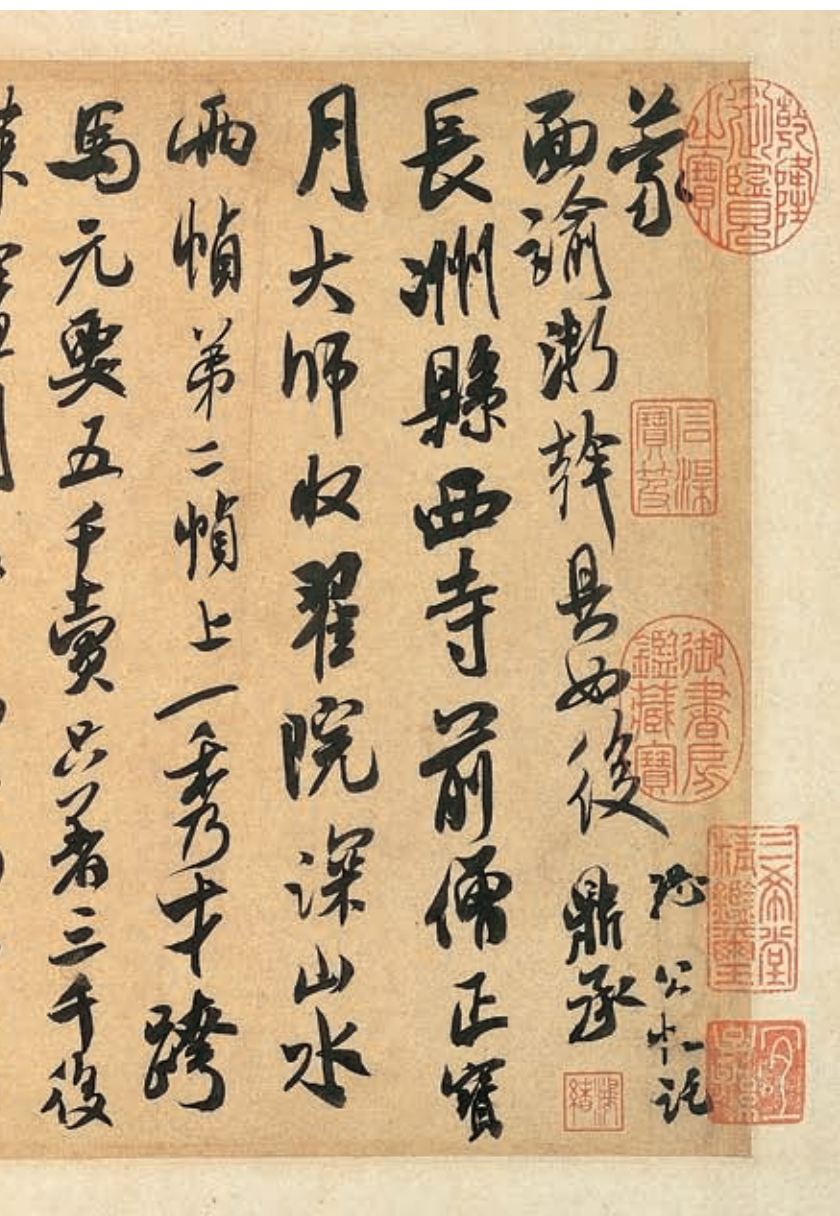 乾隆御覽之寶
石渠寶笈
御書房鑑藏寶
三希堂精鑑璽
蒙
面諭浙幹具如後
鼎承
長洲縣西寺前僧正寶
月大師收翟院深山水
兩幀第二幀上一秀才跨
馬元要五千賣只著三千後